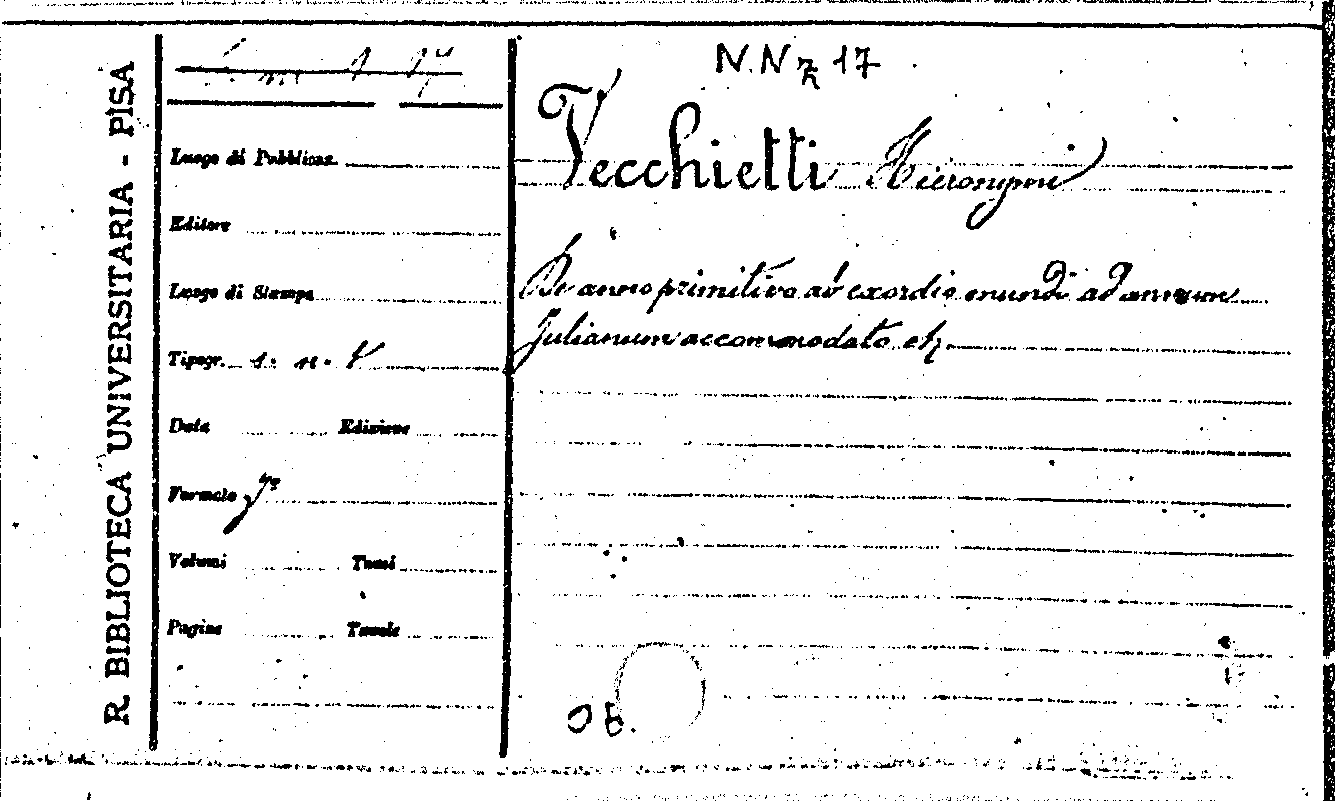 R. BIBLIOTECA UNIVERSITARIA - PISA
N.N 17
Vecchietti Hieronymi
Luogo di Pubblicaz.
Editore
De anno primitivo ab exordio mundi ad annum
Luogo di Stampa
Julianum accommodato etc.
Tipogr. s. n. t.
Data Edizione
Formato fº
Volumi Tomi
Pagine Tavole